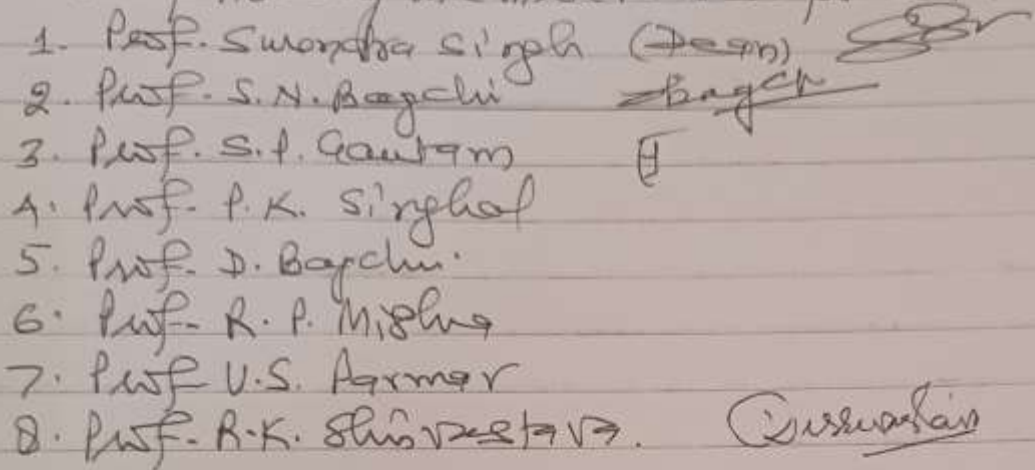 1. Prof. Surendra Singh (Dean)
2. Prof. S.N. Bagchi Bagchi
3. Prof. S.P. Gautam
4. Prof. P.K. Singhal
5. Prof. D. Bagchi.
6. Prof. R.P. Mishra
7. Prof U.S. Parmar
8. Prof. R.K. Shrivastava.